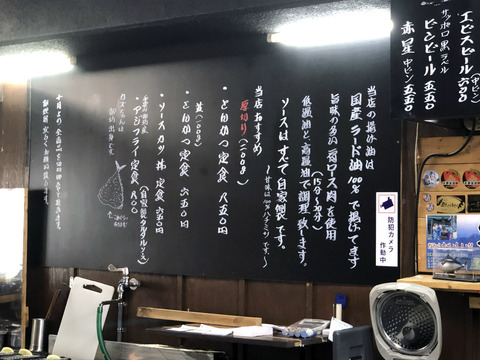 エビスビール(中ビン)六〇〇
サッポロ黒ラベル
ビンビール 五五〇
赤星(中ビン)五五〇
当店の揚げ油は
国産ラード油100%で揚げてます
旨味の多い肩ロース肉を使用
(15分〜20分)
低温油と、高温油で調理致します。
ソースはすべて自家製です。
〜甘味は100%ハチミツです。〜
当店おすすめ
厚切り(200g)
・とんかつ定食 八五〇円
並(120g)
・とんかつ定食 六五〇円
・ソースカツ丼定食 六五〇円
・アジフライ定食 八五〇円
(自家製タルタルソース)
防犯カメラ
作動中